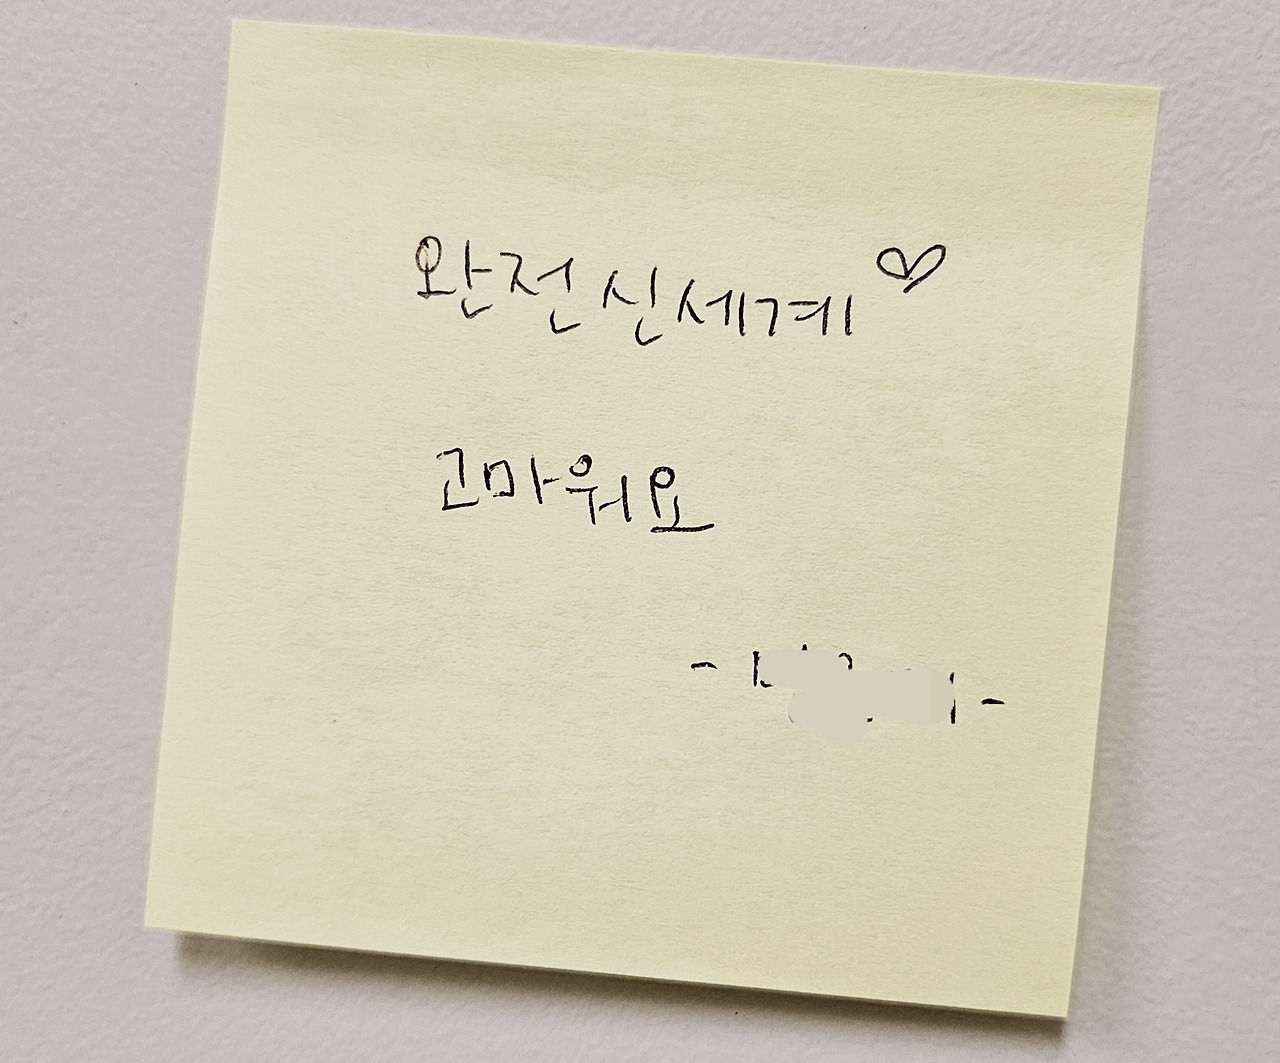 완전 신세계 ♡
고마워요